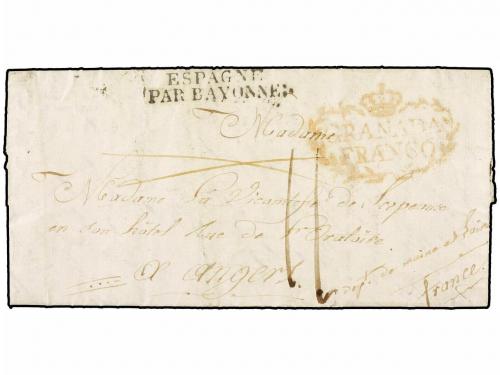 ESPAGNE
PAR BAYONNE
GRANADA
FRANCO
Madame
11
Madame La Vicomtesse de
en son hôtel Rue de l'Oratoire
a angers
dept. de maine et Loire
france